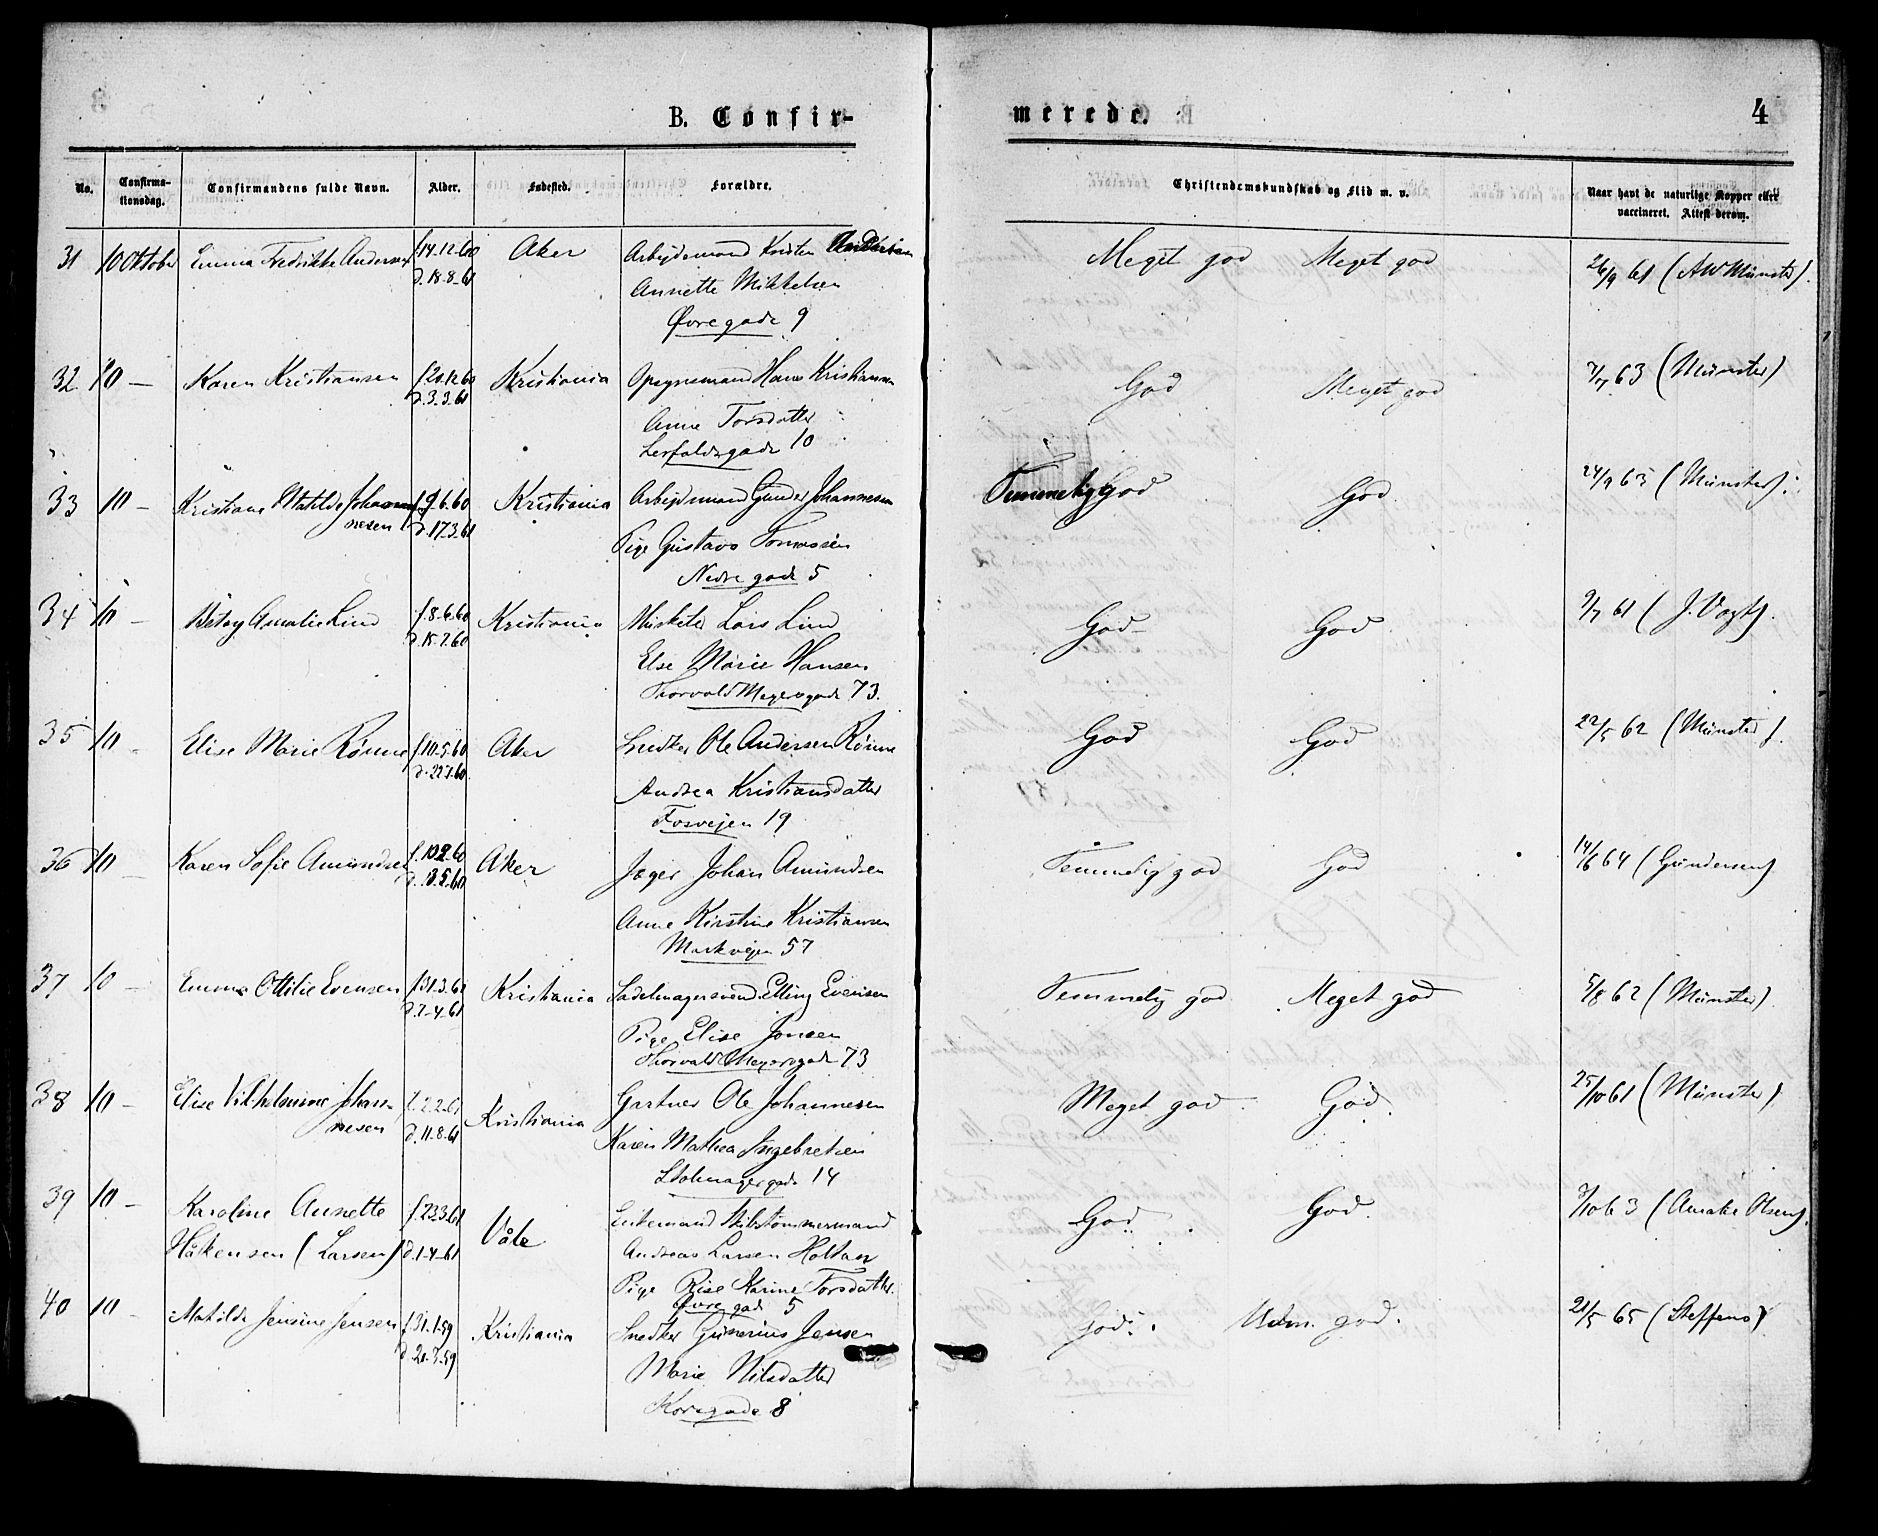 B. Confir-
merede.
4
No.
Confirma-
tionsdag.
Confirmandens fulde Navn.
Alder.
Fødested.
Forældre.
Christendomskundskab og Flid m. v.
Naar havt de naturlige Kopper eller
vaccineret. Attest derom.
31 10 Oktober Emma Fredrikke Andersen f. 14-12-60 Aker Arbejdsmand Kristen Andersen Meget god Meget god 26/9 61 (AW Münster).
d. 18-8-61 Annette Mikkelsen
Øvregade 9
32 10 — Karen Kristiansen f. 20-12-60 Kristiania Opsynsmand Hans Kristiansen God Meget god 7/7 63 (Münster)
d. 3-3-61 Anne Torsdatter
Lerfaldsgade 10
33 10 — Kristiane Matilde Johan- f. 9-6-60 Kristiania Arbejdsmand Gunder Johannesen Temmelig God God 24/9 63 (Münster).
nesen d. 17-3-61 Pige Gustava Tomassen
Nedregade 5
34 10 — Betsy Amalie Lind f. 8-6-60 Kristiania Musketer Lars Lind God God 9/7 61 (J. Vogt).
d. 15-7-60 Else Marie Hansen
Thorvald Meyersgade 73.
35 10 - Elise Marie Rønne f. 10-5-60 Aker Snedker Ole Andersen Rønne God God 22/5 62 (Münster).
d. 22-7-60. Andrea Kristiansdatter
Fosvejen 19
36 10 — Karen Sofie Amundsen Aker Jæger Johan Amundsen Temmelig god God 14/6 64 (Gundersen)
Anne Kirstine Kristiansen
Markvejen 57
37 10 — Emma Ottilie Evensen f. 31-3-61 Kristiania Sadelmagersvend Elling Evensen Temmelig god Meget god 5/8 62 (Münster).
d. 7-4-61 Pige Elise Jonsen
Thorvald Meyersgade 73
38 10 — Elise Vilhelmine Johan- f. 2-2-61 Kristiania Gartner Ole Johannesen Meget god God. 25/10 61 (Münster).
nesen d. 11-8-61 Karen Mathea Ingebretsen
Stolmagergade 14
39 10 — Karoline Annette f. 23-3-61 Våle Enkemand Skibstømmermand God God. 3/10 63 (Amalie Olsen).
Håkensen (Larsen) d. 1-4-61 Andreas Larsen Holtan
Pige Rise Karine Torsdatter.
Øvregade 5
40 10 — Matilde Jensine Jensen f. 31-1-59 Kristiania Snedker Gunerius Jensen God. Udm. god. 21/5 65 (Steffens)
d. 20-3-59 Marie Nilsdatter
Korsgade 8